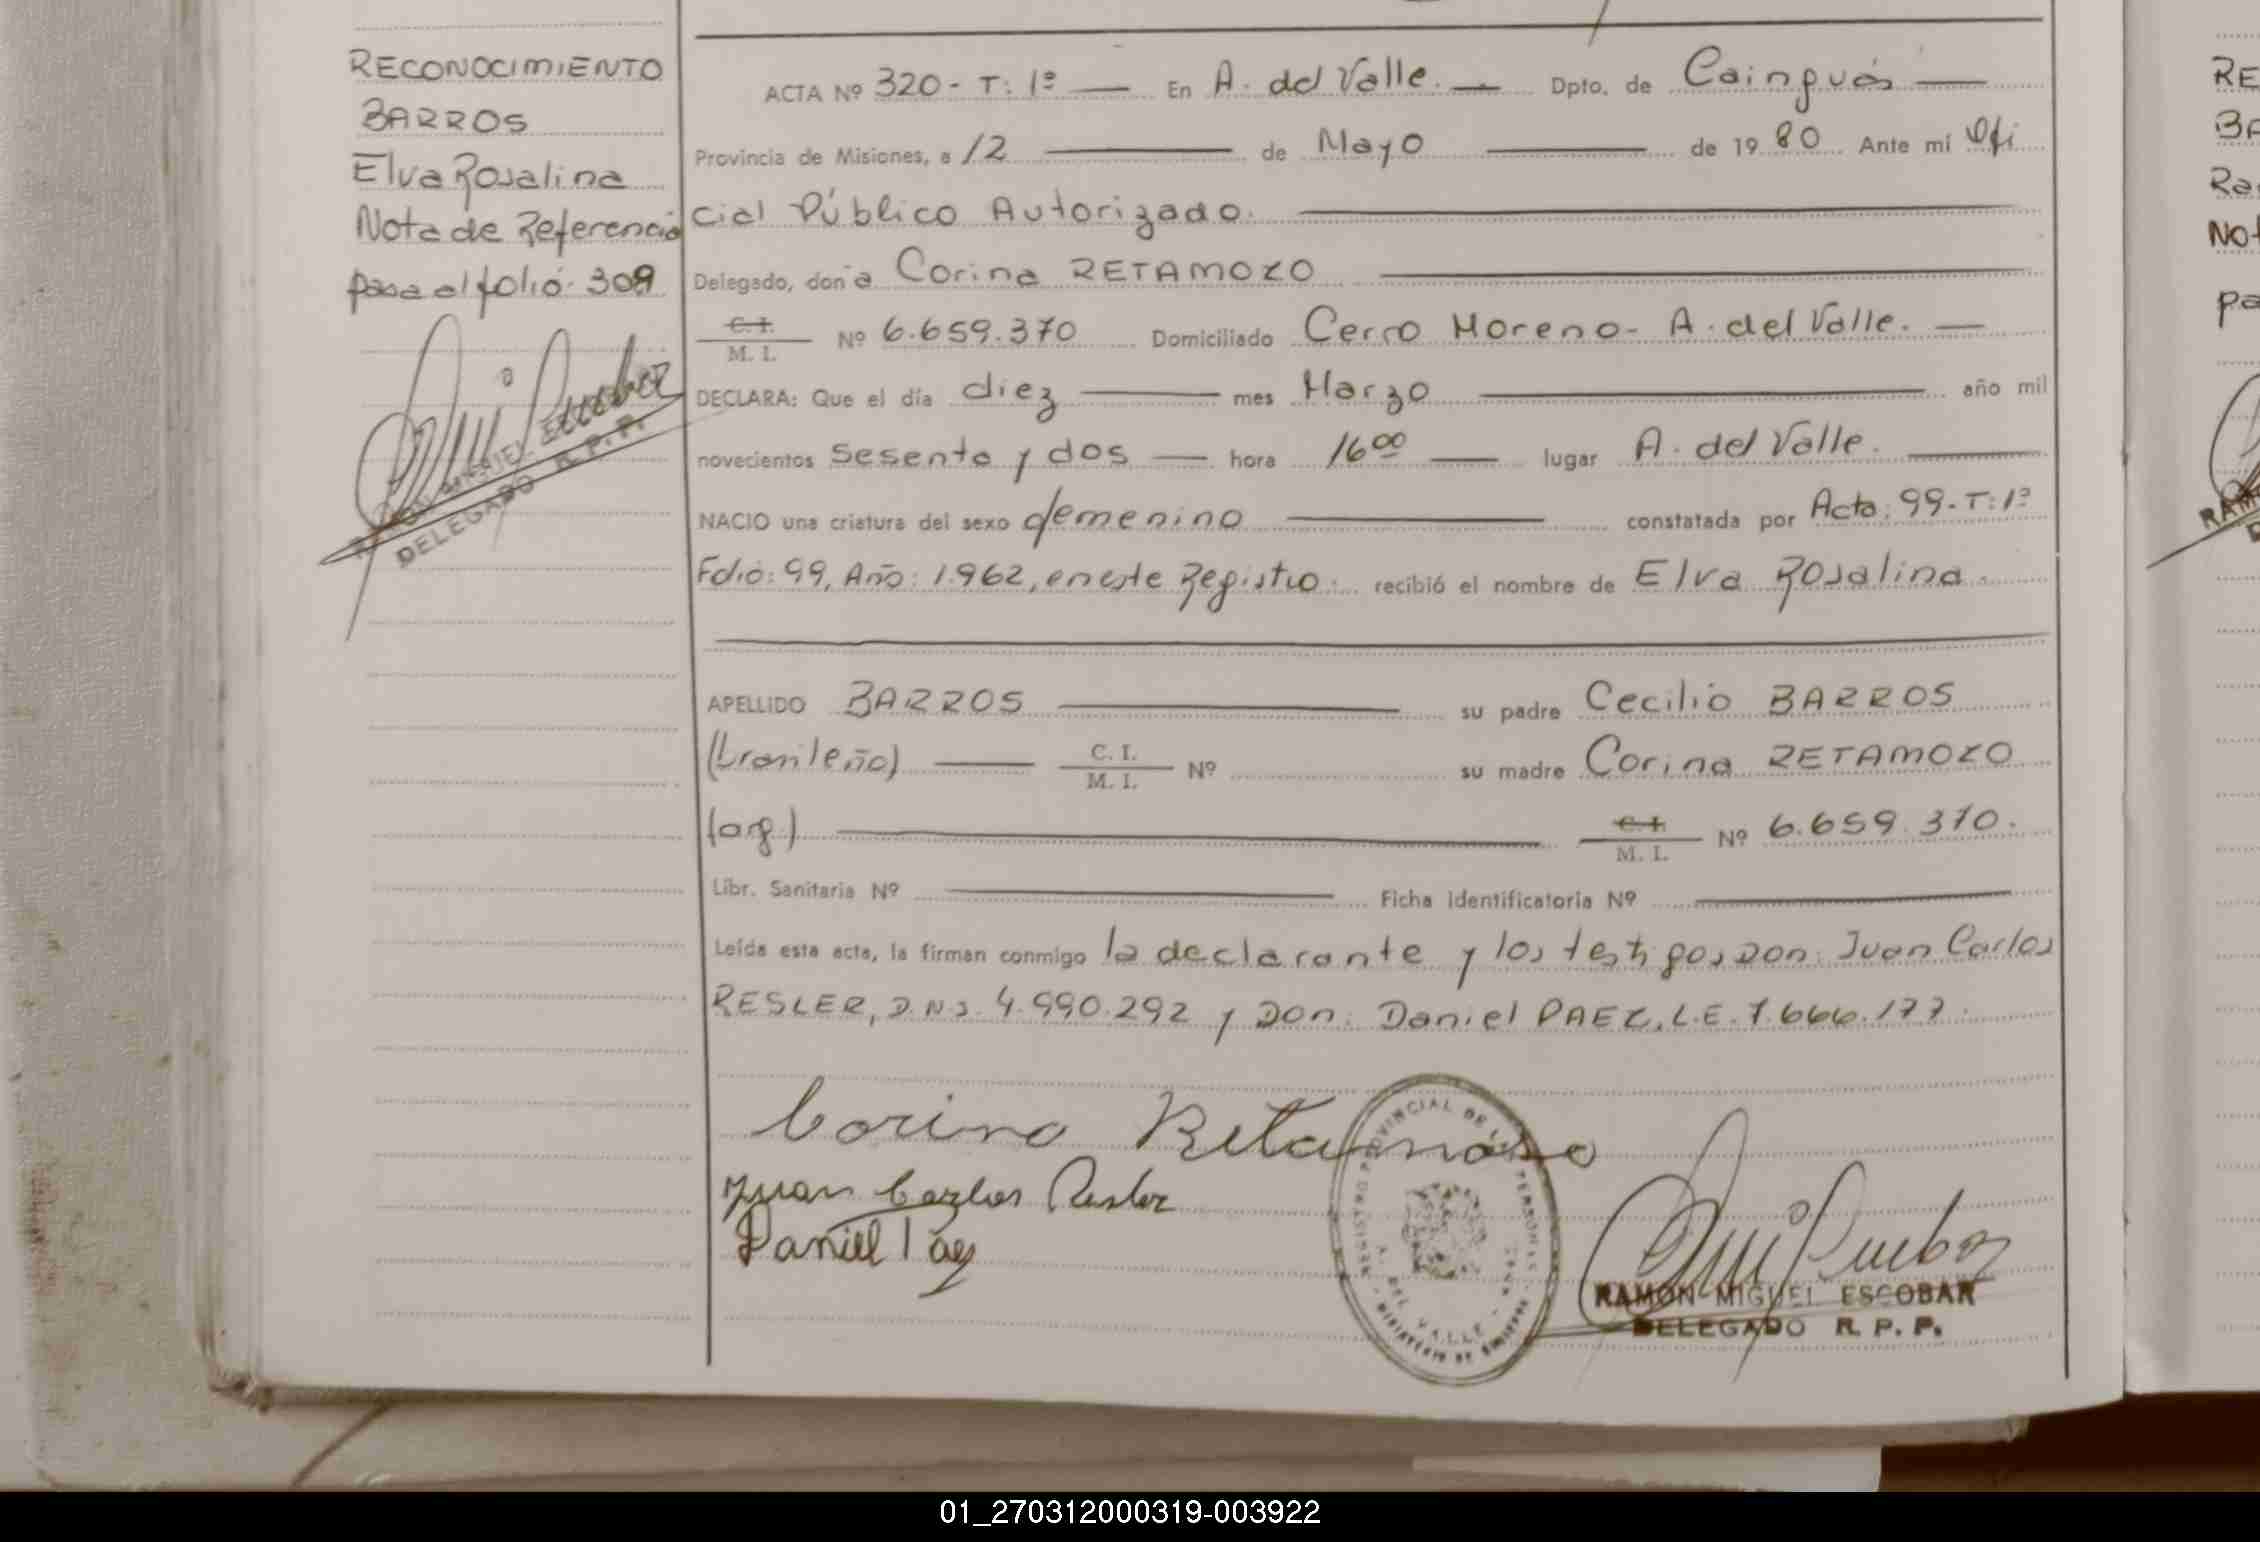 RECONOCIMIENTO
BARROS
Elva Rosalina
Nota de Referencia
pasa al folio: 309
RAMON MIGUEL ESCOBAR
DELEGADO R. P. P.
ACTA Nº 320 - T: 1º — En A. del Valle. — Dpto. de Cainguás —
Provincia de Misiones, a 12 — de Mayo — de 19 80 Ante mí Ofi
cial Público Autorizado. —
Delegado, doña Corina RETAMOZO —
C. I.
M. I. Nº 6.659.370 Domiciliado Cerro Moreno - A. del Valle. —
DECLARA: Que el día diez — mes Marzo — año mil
novecientos sesenta y dos — hora 16 00 — lugar A. del Valle. —
NACIO una criatura del sexo femenino — constatada por Acta: 99 - T: 1º
Folio: 99, Año: 1.962, en este Registro. recibió el nombre de Elva Rosalina.
APELLIDO BARROS — su padre Cecilio BARROS
(brasileño) — C. I.
M. I. Nº su madre Corina RETAMOZO
(arg.) — C. I.
M. I. Nº 6.659.370.
Libr. Sanitaria Nº — Ficha Identificatoria Nº —
Leída esta acta, la firman conmigo la declarante y los testigos Don: Juan Carlos
RESLER, D.N.I. 4.990.292 y Don: Daniel PAEZ, L.E. 7.666.177.
Corina Retamoso
Juan Carlos Resler
Daniel Páez
REGISTRO PROVINCIAL DE LAS PERSONAS
A. DEL VALLE
RAMON MIGUEL ESCOBAR
DELEGADO R. P. P.
RE
BA
Ra
Not
pa
01_270312000319-003922